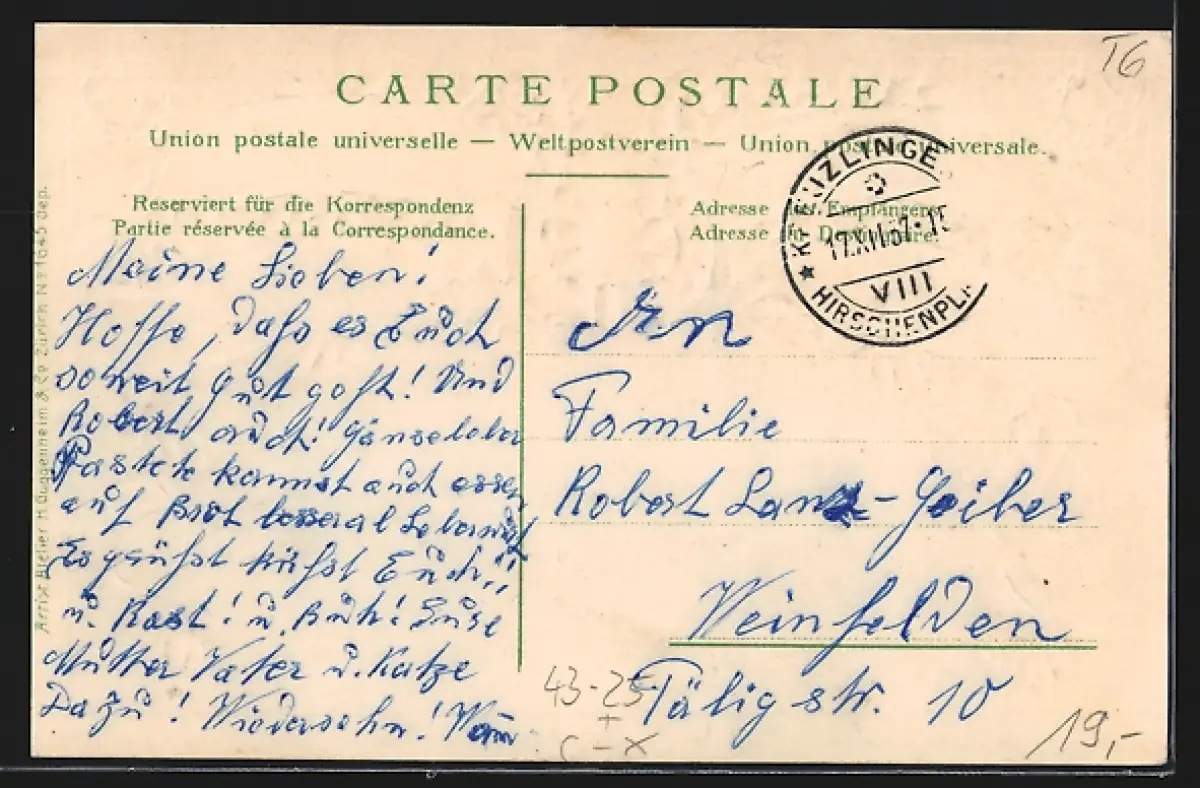 T6
CARTE POSTALE
Union postale universelle — Weltpostverein — Union postale universale.
Reserviert für die Korrespondenz
Partie réservée à la Correspondance.
Adresse des Empfängers
Adresse du Destinataire.
KREUZLINGE
17.XII.57.-15
VIII
★ HIRSCHENPL
Artist. Atelier H. Guggenheim & Co. Zürich No 1645 dep.
Meine Lieben!
Hoffe, dass es Euch
soweit gut geht! Und
Robert auch! Gänseleber
Pastete kannst auch essen
auf Brot
Es grüsst küsst Euch!!
u. ! u. Suse
Mutter Vater u. Katze
Dazu! Wiedersehn!
An
Familie
Robert Lanz-Geiber
Weinfelden
Täligstr. 10
43-25
+
C-X
19,-